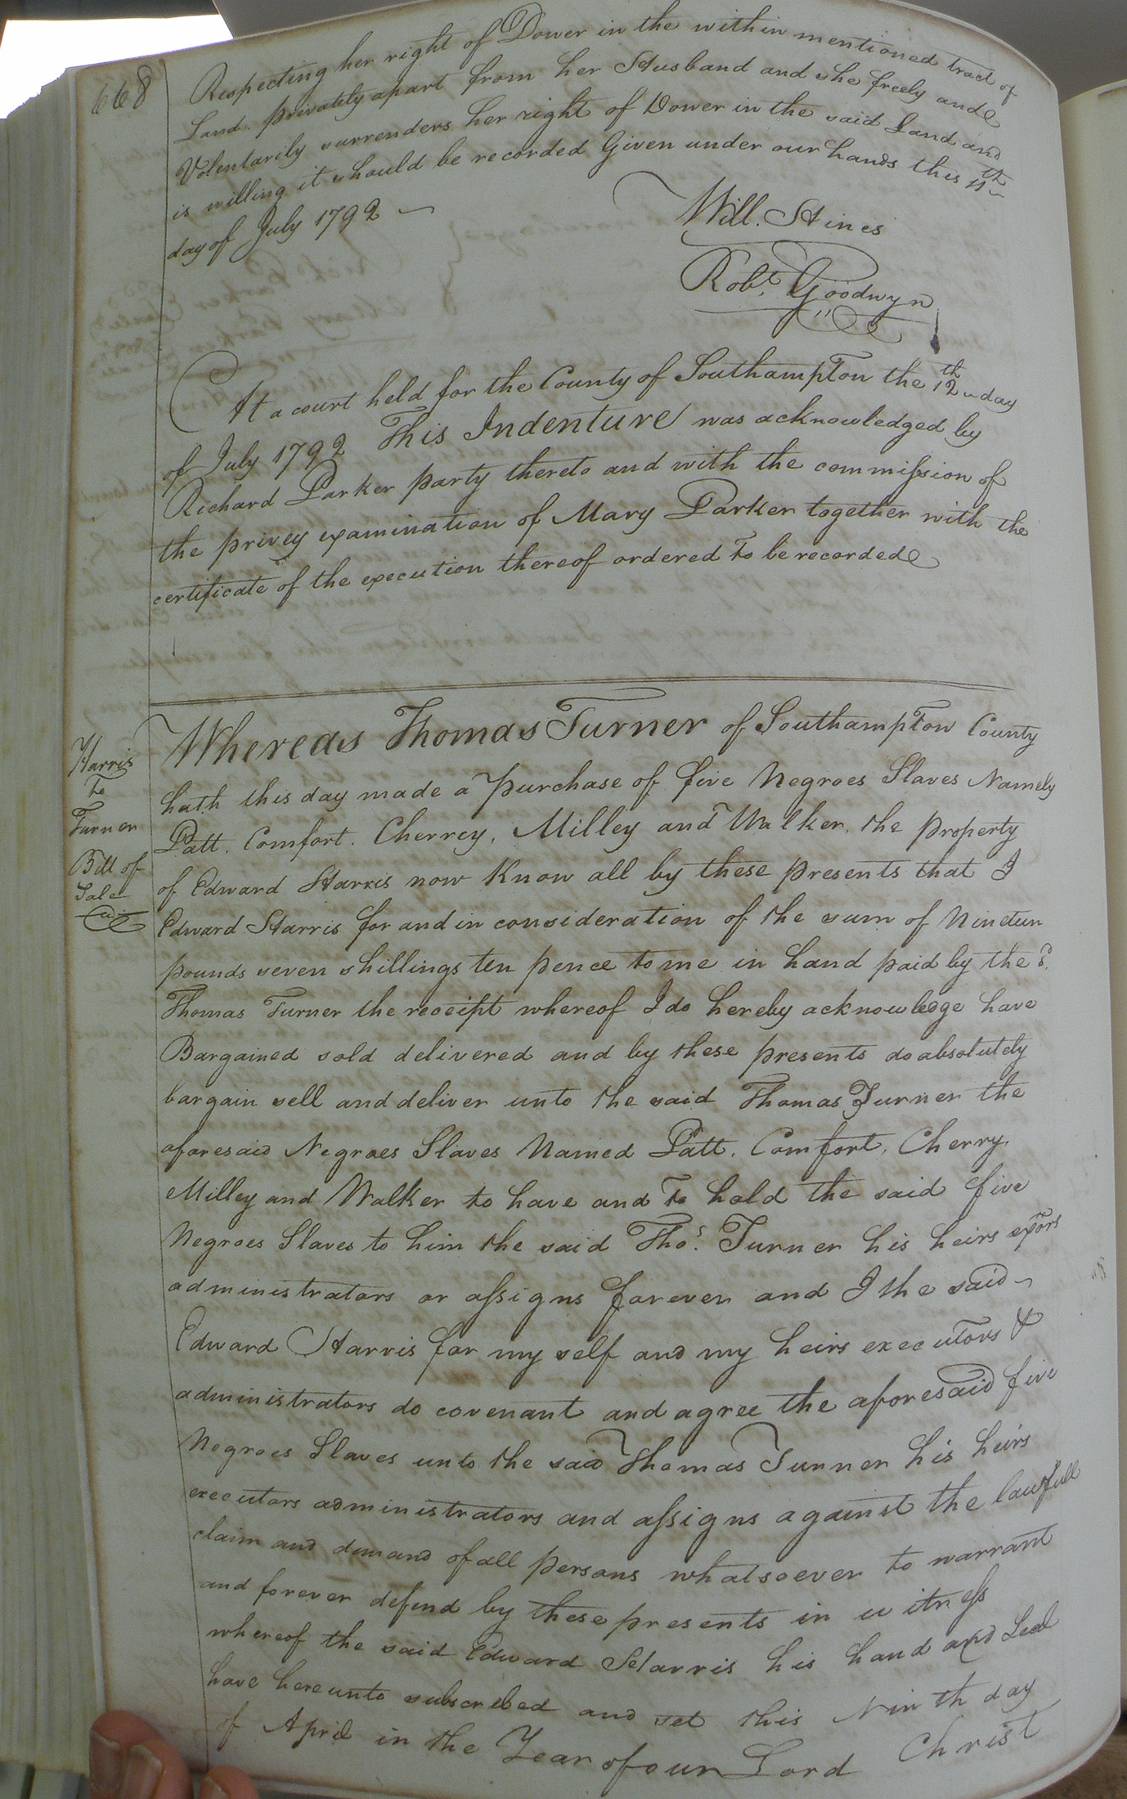 668
Respecting her right of Dower in the within mentioned tract of
Land privately apart from her Husband and she freely and
Volentarily surrenders her right of Dower in the said Land and
is willing it should be recorded Given under our hands this 11th
day of July 1792
Will. Hines
Robt. Goodwyn
At a court held for the County of Southampton the 12th day
of July 1792 This Indenture was acknowledged by
Richard Parker party thereto and with the commission of
the privey examination of Mary Parker together with the
certificate of the execution thereof ordered to be recorded
Harris
to
Turner
Bill of
Sale
Whereas Thomas Turner of Southampton County
hath this day made a purchase of five Negroes Slaves Namely
Patt. Comfort. Cherrey, Milley and Walker. the property
of Edward Harris now Know all by these presents that I
Edward Harris for and in consideration of the sum of Nineteen
pounds seven shillings ten pence to me in hand paid by the sd.
Thomas Turner the receipt whereof I do hereby acknowledge have
Bargained sold delivered and by these presents do absolutely
bargain sell and deliver unto the said Thomas Turner the
aforesaid Negroes Slaves Named Patt. Comfort, Cherry
Milley and Walker to have and to hold the said five
Negroes Slaves to him the said Thos. Turner his heirs exors
administrators or assigns forever and I the said
Edward Harris for my self and my heirs executors &
administrators do covenant and agree the aforesaid five
Negroes Slaves unto the said Thomas Turner his heirs
executors administrators and assigns against the lawfull
claim and demand of all persons whatsoever to warrant
and forever defend by these presents in witness
whereof the said Edward Harris his hand and Seal
have hereunto subscribed and set this Ninth day
of April in the Year of our Lord Christ